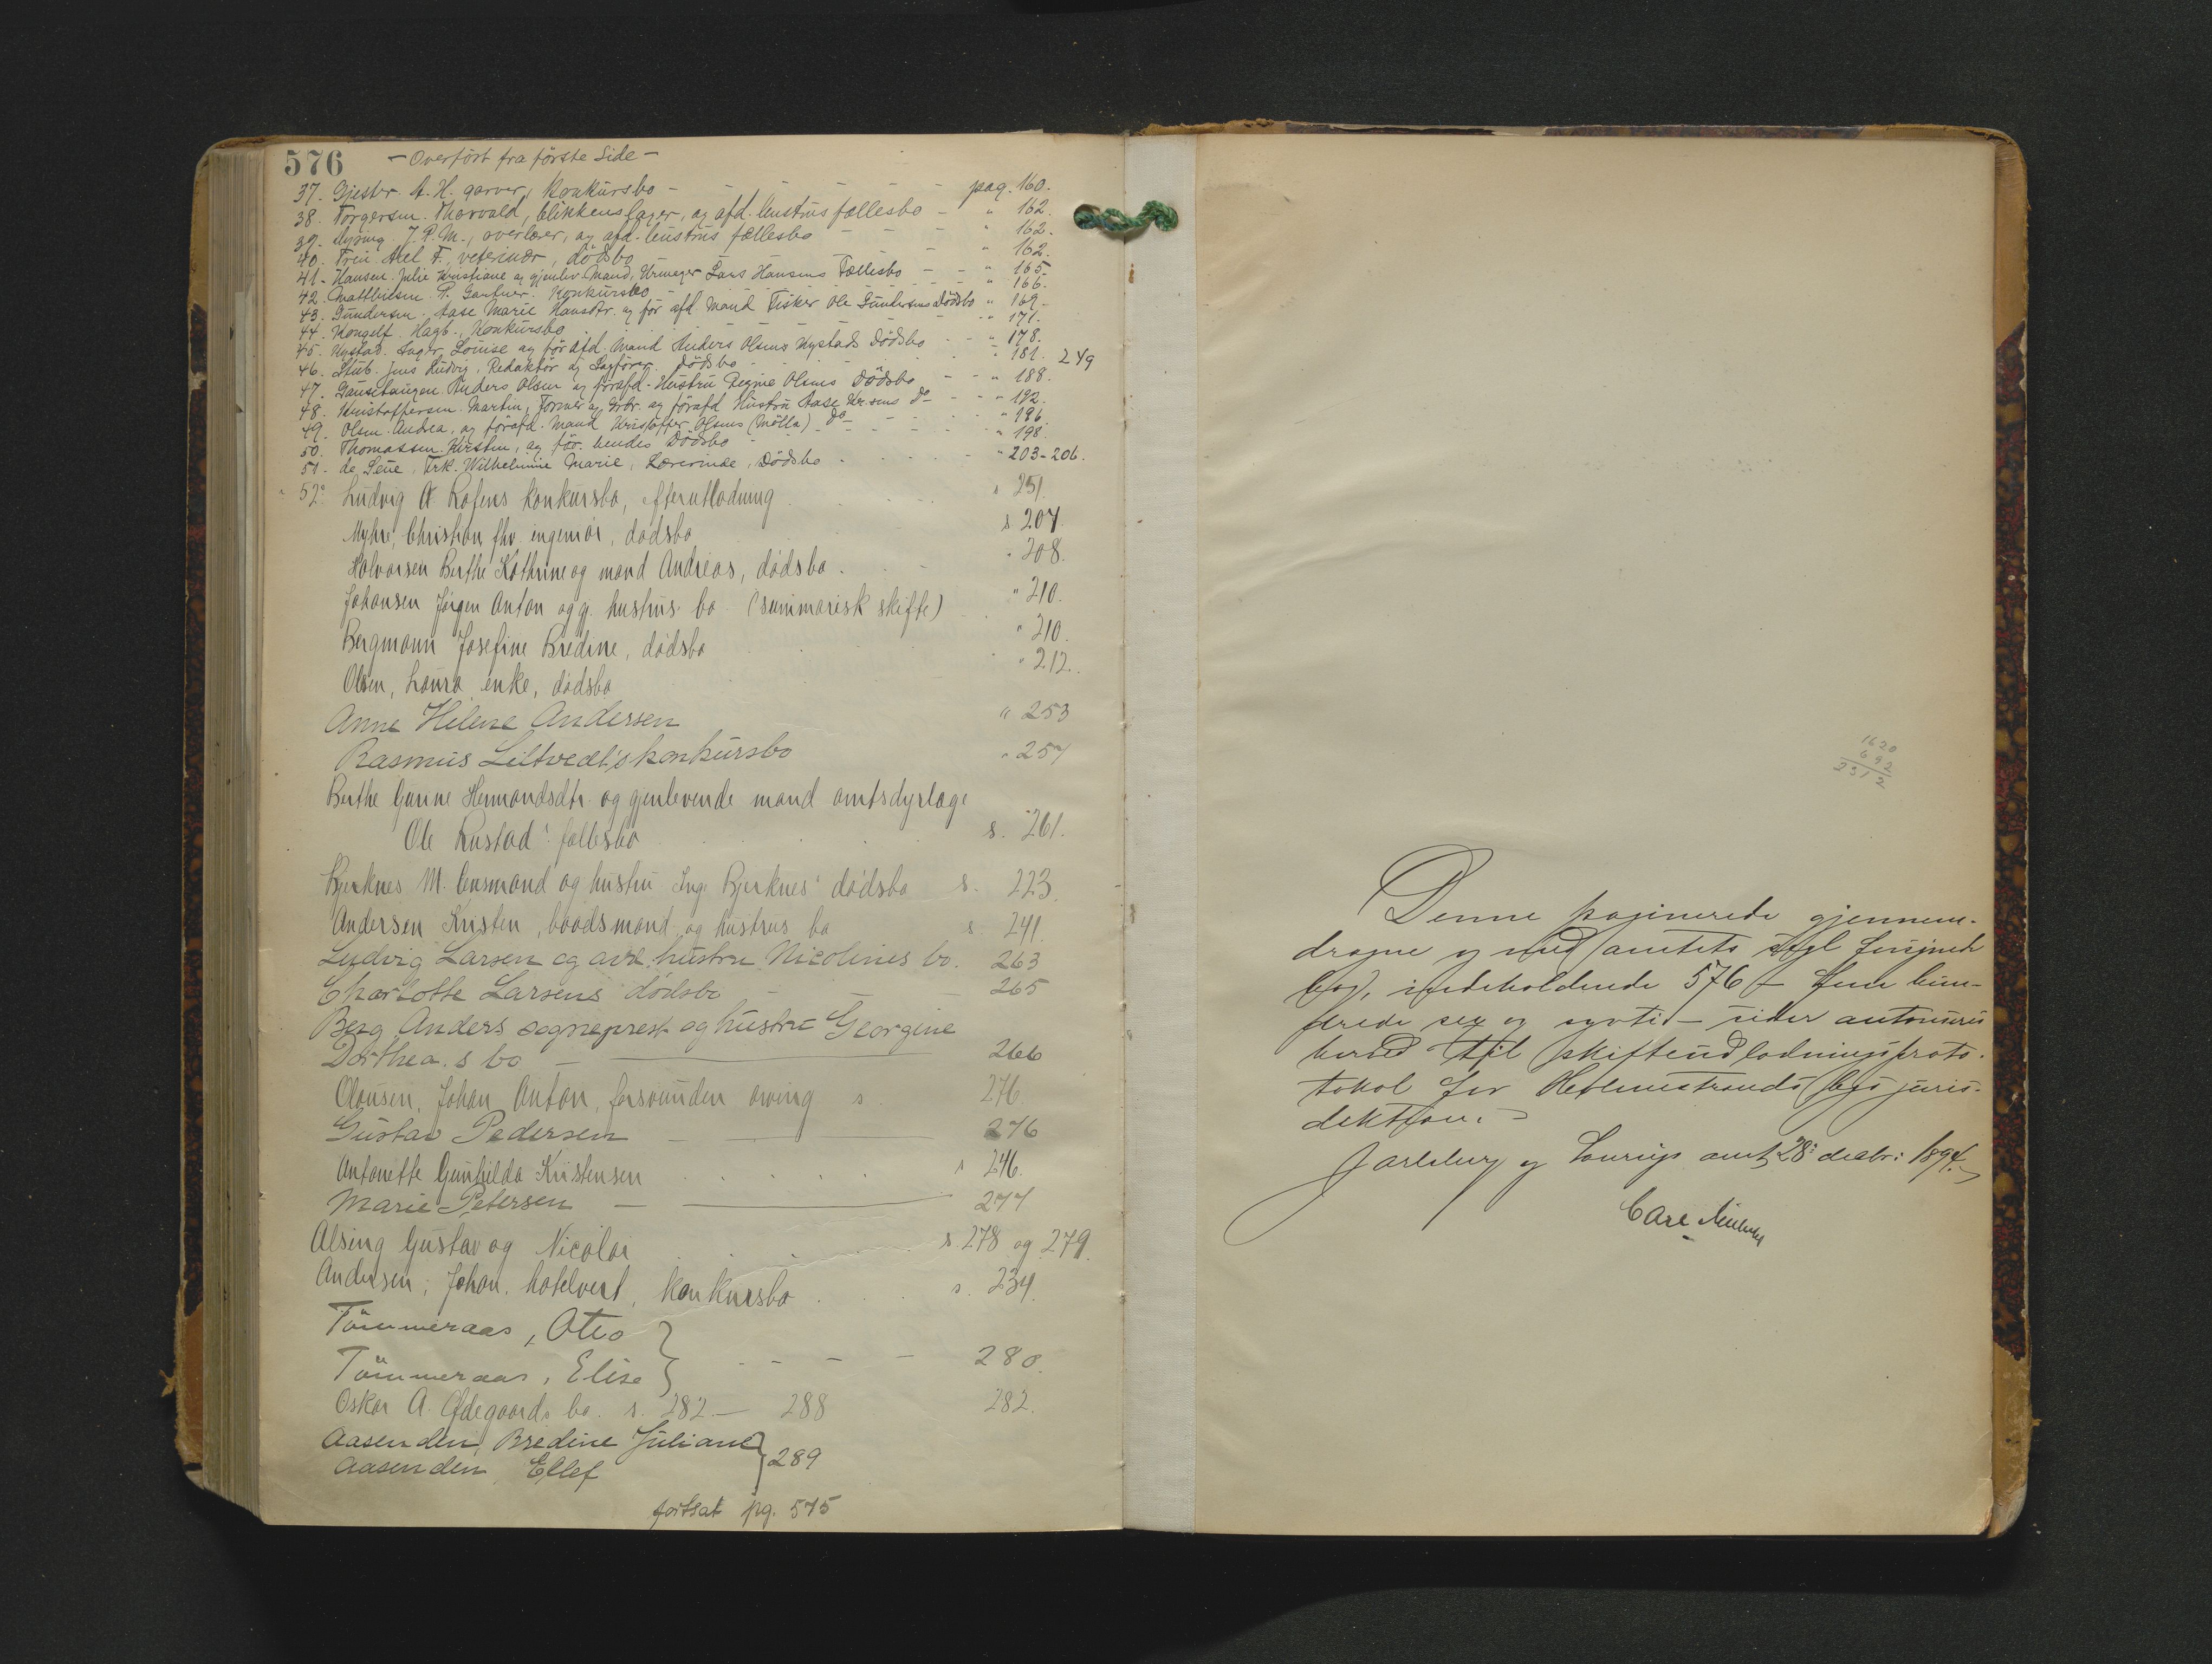 576 - Overført fra første Side -
37. Gjestvr. A. H. garver, Konkursbo - pag. 160.
38. Torgersen. Thorvald, blikkenslager, og afd. hustrus fællesbo - " 162.
39. J. P. M., overlærer, og afd. hustrus fællesbo - " 162.
40. Axel F., veterinær, dødsbo - " 162.
41. Hansen. Julie Kristiane og gjenlev. Mand, Urmager Lars Hansens Fællesbo - " 165.
42. Matthiesen. P. Gartner. Konkursbo " 166.
43. Gundersen, Aase Marie Hansdtr. og før afd. Mand Fisker Ole Gundersens Dødsbo " 169.
44. Kongelf. Hagb., Konkursbo " 171.
45. Nystad. Inger Louise og før afd. Mand Anders Olsens Nystads Dødsbo " 178.
46. Stub. Jens Ludvig, Redaktør og Sagfører. Dødsbo " 181. 249
47. Anders Olsen og førafd. Hustru Regine Olsens Dødsbo " 188.
48. Kristoffersen. Martin, Former og førafd Hustru Aase Kr.sens Do " 192.
49. Olsen. Andrea, og førafd. Mand Kristoffer Olsens (Mølla) Do " 196.
50. Thomassen. Kirsten, og før. hendes Dødsbo " 198.
51. de Seue, Frk. Wilhelmine Marie, Lærerinde, Dødsbo " 203-206.
52. Ludvig A. Rofens konkursbo, efterutlodning s 251.
Myhre, Christian fhv. ingeniør, dødsbo s 207.
Halvorsen Berthe Kathrine og mand Andreas, dødsbo. " 208.
Johansen Jørgen Anton og gj. hustrus bo (summarisk skifte) " 210.
Bergmann Josefine Bredine, dødsbo " 210.
Olsen, Laura enke, dødsbo " 212.
Anne Helene Andersen " 253
Rasmus Liltvedt's konkursbo " 257
Berthe Gunine Hermandsdtr. og gjenlevende mand amtsdyrlæge
Ole Rustad' fællesbo s. 261.
Bjerknes M. lensmand og hustru Inga Bjerknes' dødsbo s. 223.
Andersen Kristen, baadsmand og hustrus bo s. 241.
Ludvig Larsen og avd. hustru Nicolines bo. 263
Charlotte Larsens dødsbo - 265
Berg Anders sogneprest og hustru Georgine
Dorthea.s bo - 266
Olausen, Johan Anton, forsvunden arving s. 276.
Gustav Pedersen - 276
Antonette Gunhilda Kristensen s 246.
Marie Petersen - 277
Alsing Gustav og Nicolai s. 278 og 279.
Andersen, Johan. hotelvert, konkursbo s. 234.
Tømmeraas, Otto
Tømmeraas, Elise } - - - 280.
Oskar A. Ødegaards bo. s. 282 - 288 282.
Aasenden, Bredine Juliane
Aasenden, Ellef } 289
fortsat pg. 575
1620
692
2312
Denne paginerede gjennem-
dragne og med amtets segl forsynede
bog, indeholdende 576 - fem hun-
drede sex og sytti - sider autoriseres
herved til skifteudlodningsproto-
tokol for Holmestrands bys juris-
diktion. -
Jarlsberg og Laurvigs amt, 28: decbr: 1894.
Carl